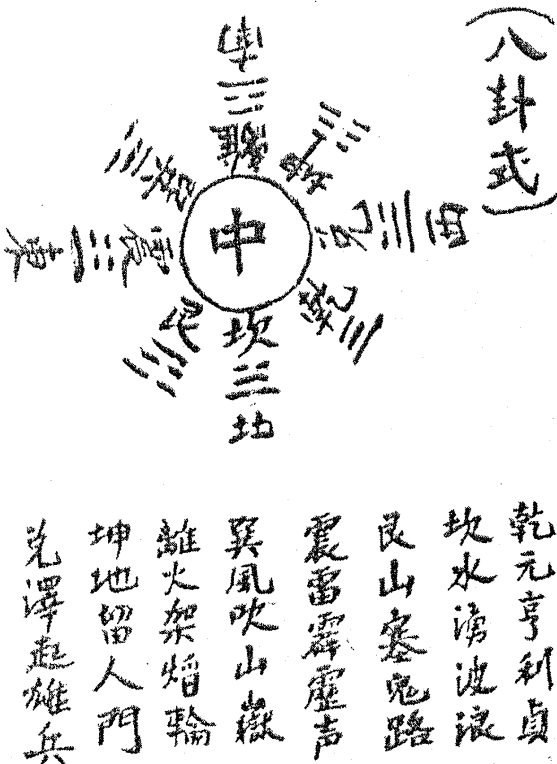 (八卦式)
南
離
坤
兌
西
乾
坎
北
艮
震
東
巽
中
乾元亨利貞
坎水湧波浪
艮山塞鬼路
震雷霹靂声
巽風吹山嶽
離火架焰輪
坤地留人門
兌澤起雄兵